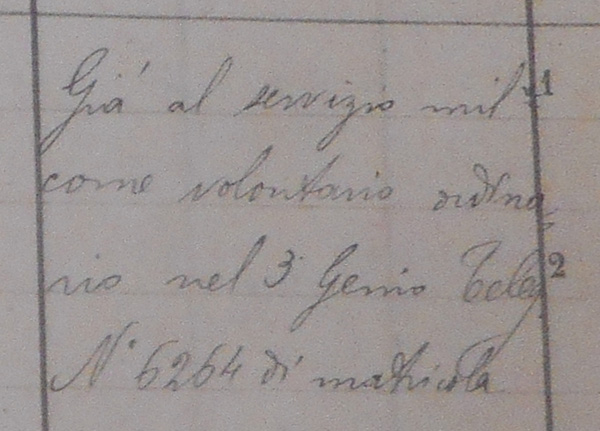 Già al servizio mil 1
come volontario ordina=
rio nel 3 Genio Teleg 2
N° 6264 di matricola